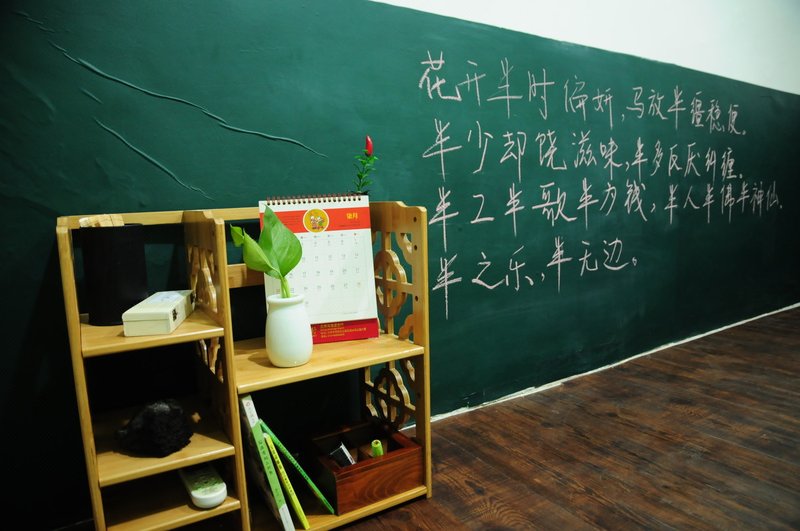 花开半时偏妍，马放半缰稳便。
半少却饶滋味，半多反厌纠缠。
半工半歌半为钱，半人半佛半神仙、
半之乐，半无边。
柒月